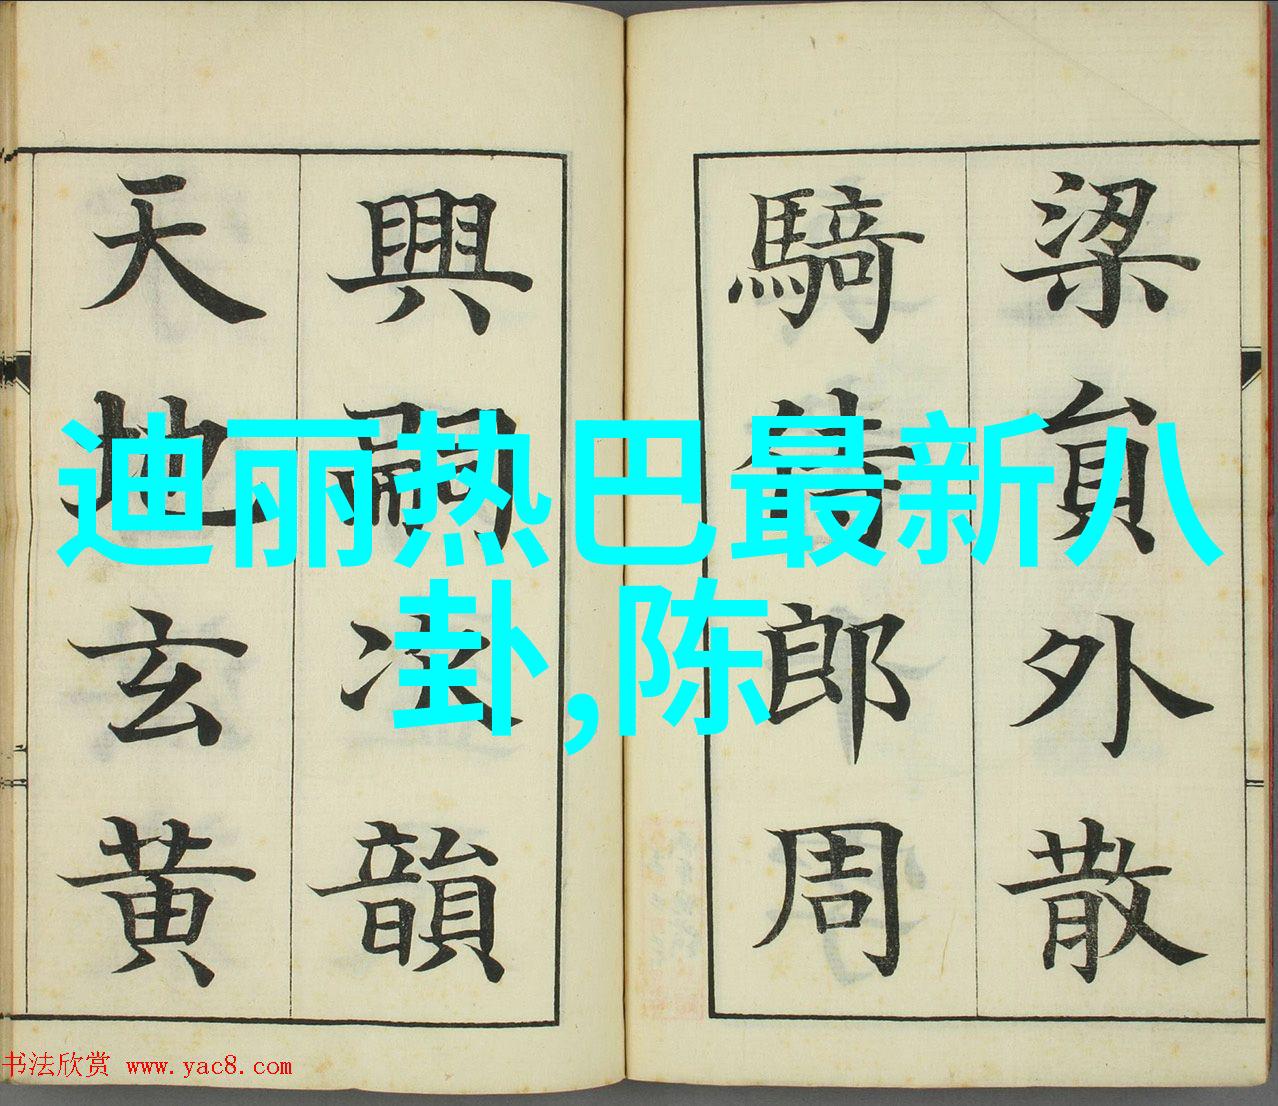 梁員外散
騎侍郎周
興嗣次韻
天地玄黄
迪丽热巴最新八
卦,陈
书法欣赏 www.yac8.com